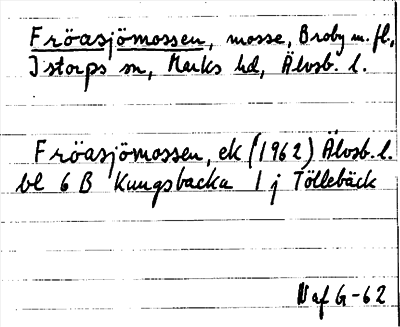 Fröasjömossen, mosse, Broby m. fl.,
Istorps sn, Marks hd, Älvsb. l.
Fröasjömossen, ek (1962) Älvsb. l.
bl 6 B Kungsbacka 1 j Töllebäck
N af G-62